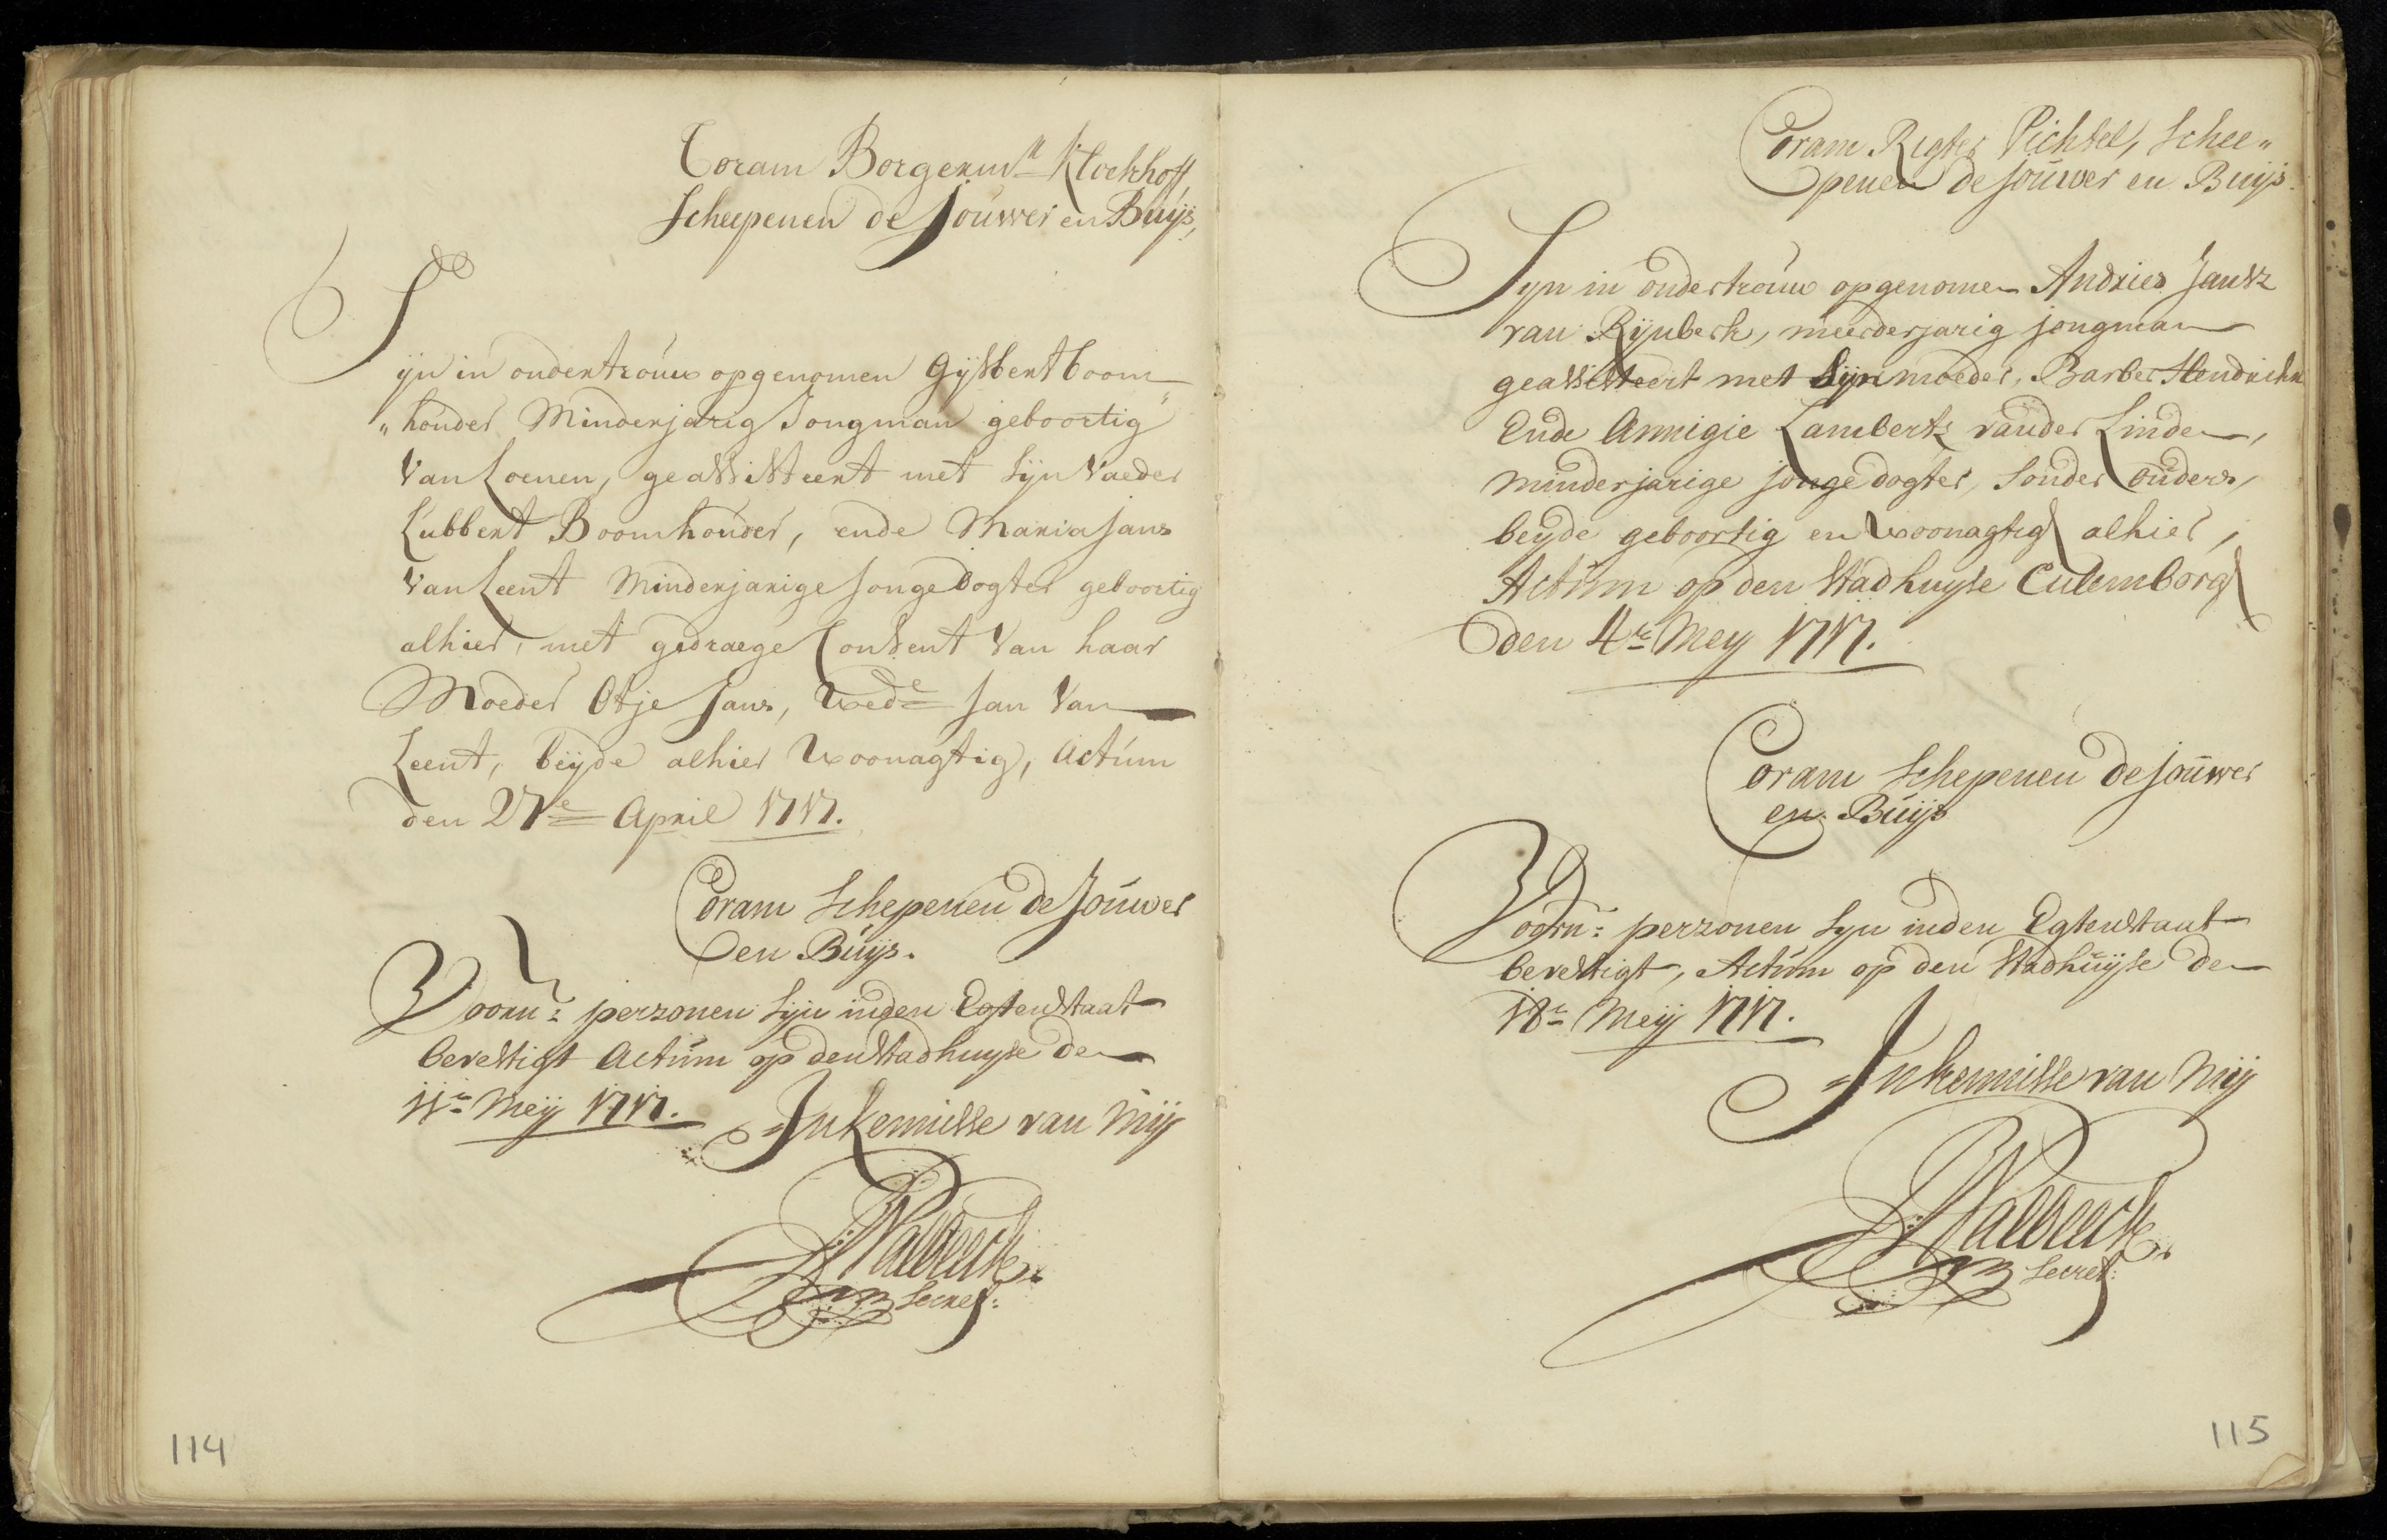 Coram Borgerm.r Klockhoff
Scheepenen de Jouwer en Buijs,
Sijn in ondertrouw opgenomen Gijsbert boom
"houder Minderjarig Jongman geboortig
Van Loenen, geassisteert met sijn Vaeder
Lubbert Boomhouder, ende Maria Jans
Van Leent Minderjarige Jongedogter geboortig
alhier, met gedraege Consent Van haar
Moeder Otje Jans, Wed.e Jan Van
Leent, beijde alhier Woonagtig, Actum
den 27.e April 1717.
Coram Schepenen de Jouwer
en Buijs.
Voorn: perzonen sijn inden Egtenstaat
bevestigt Actum op den Stadhuyse den
11.e Meij 1717. In Kennisse van Mij
Walbeeck
Secret:
114
Coram Regter Pichtel, Schee"
penen de Jouwer en Buijs.
Syn in ondertrouw opgenomen Andries Jansz
van Rijnbeck, meerderjarig jongman
geassisteert met sijn moeder, Barber Hendrickx
Ende Annigie Lamberts vander Linden,
minderjarige jonge dogter, sonder ouders,
beyde geboortig en woonagtig alhier,
Actum op den Stadhuyse Culemborg
den 4.e Mey 1717.
Coram Schepenen de Jouwer
en Buijs
Voorn: perzonen syn inden Egtenstaat
bevestigt, Actum op den Stadhuijse den
18.e Meij 1717.
In kennisse van Mij
Walbeeck
Secret:
115